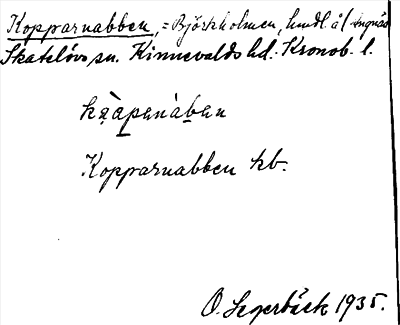 Kopparnabben, = Björkholmen, hmdl å Ingnäs
Skatelövs sn. Kinnevalds hd. Kronob. l.
kàpanàban
Kopparnabben hb.
O. Segerbäck 1935.